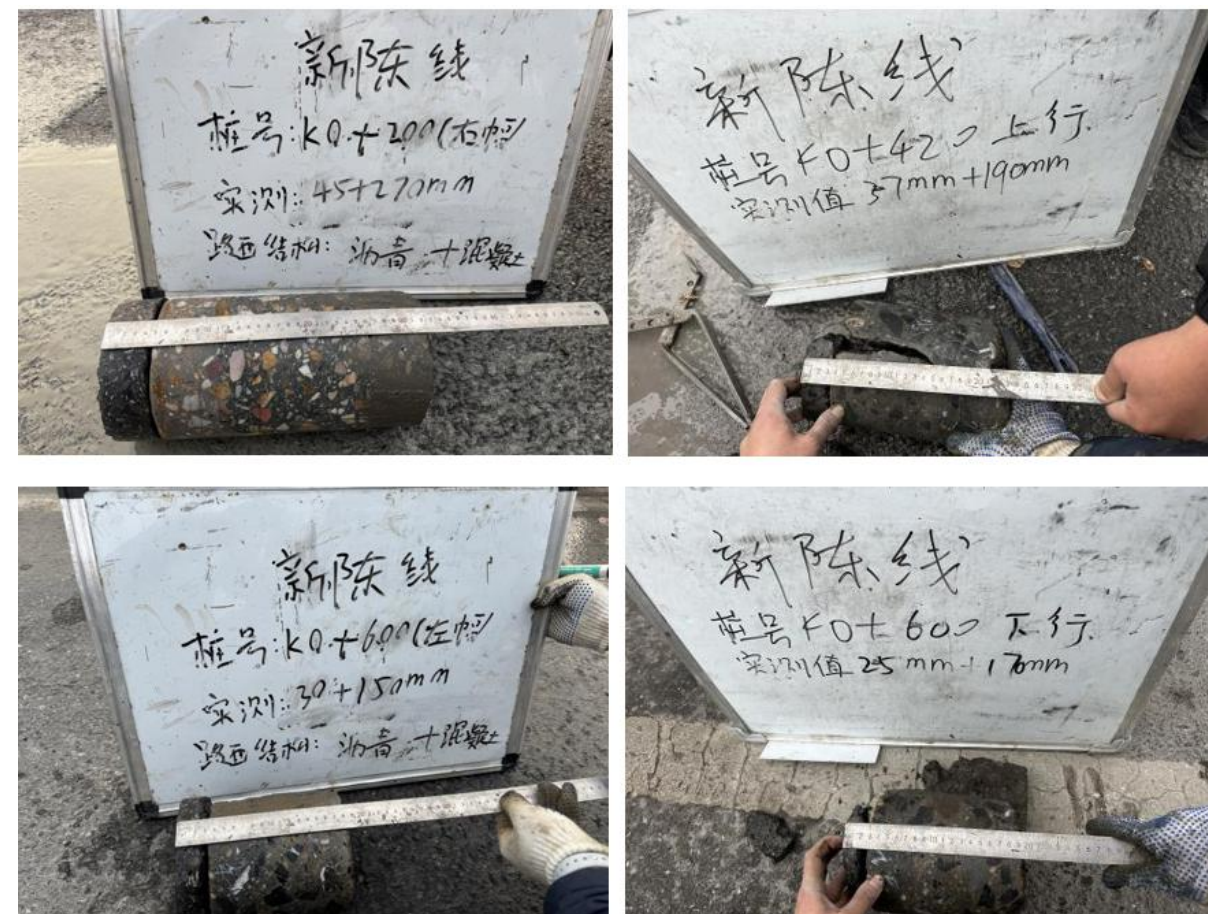 新陈线
桩号:K0+200(右幅)
实测:45+270mm
路面结构:沥青+混凝土
新陈线
桩号K0+420上行
实测值 57mm+190mm
新陈线
桩号:K0+600(左幅)
实测:30+150mm
路面结构:沥青+混凝土
新陈线
桩号K0+600下行
实测值25mm+170mm